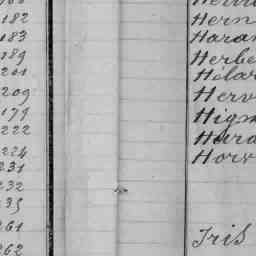 182 Hern
183 Haran
189 Herbe
201 Hélar
209 Herv
179 Higm
222
224 Horv
231
232
235
261 Iris
262